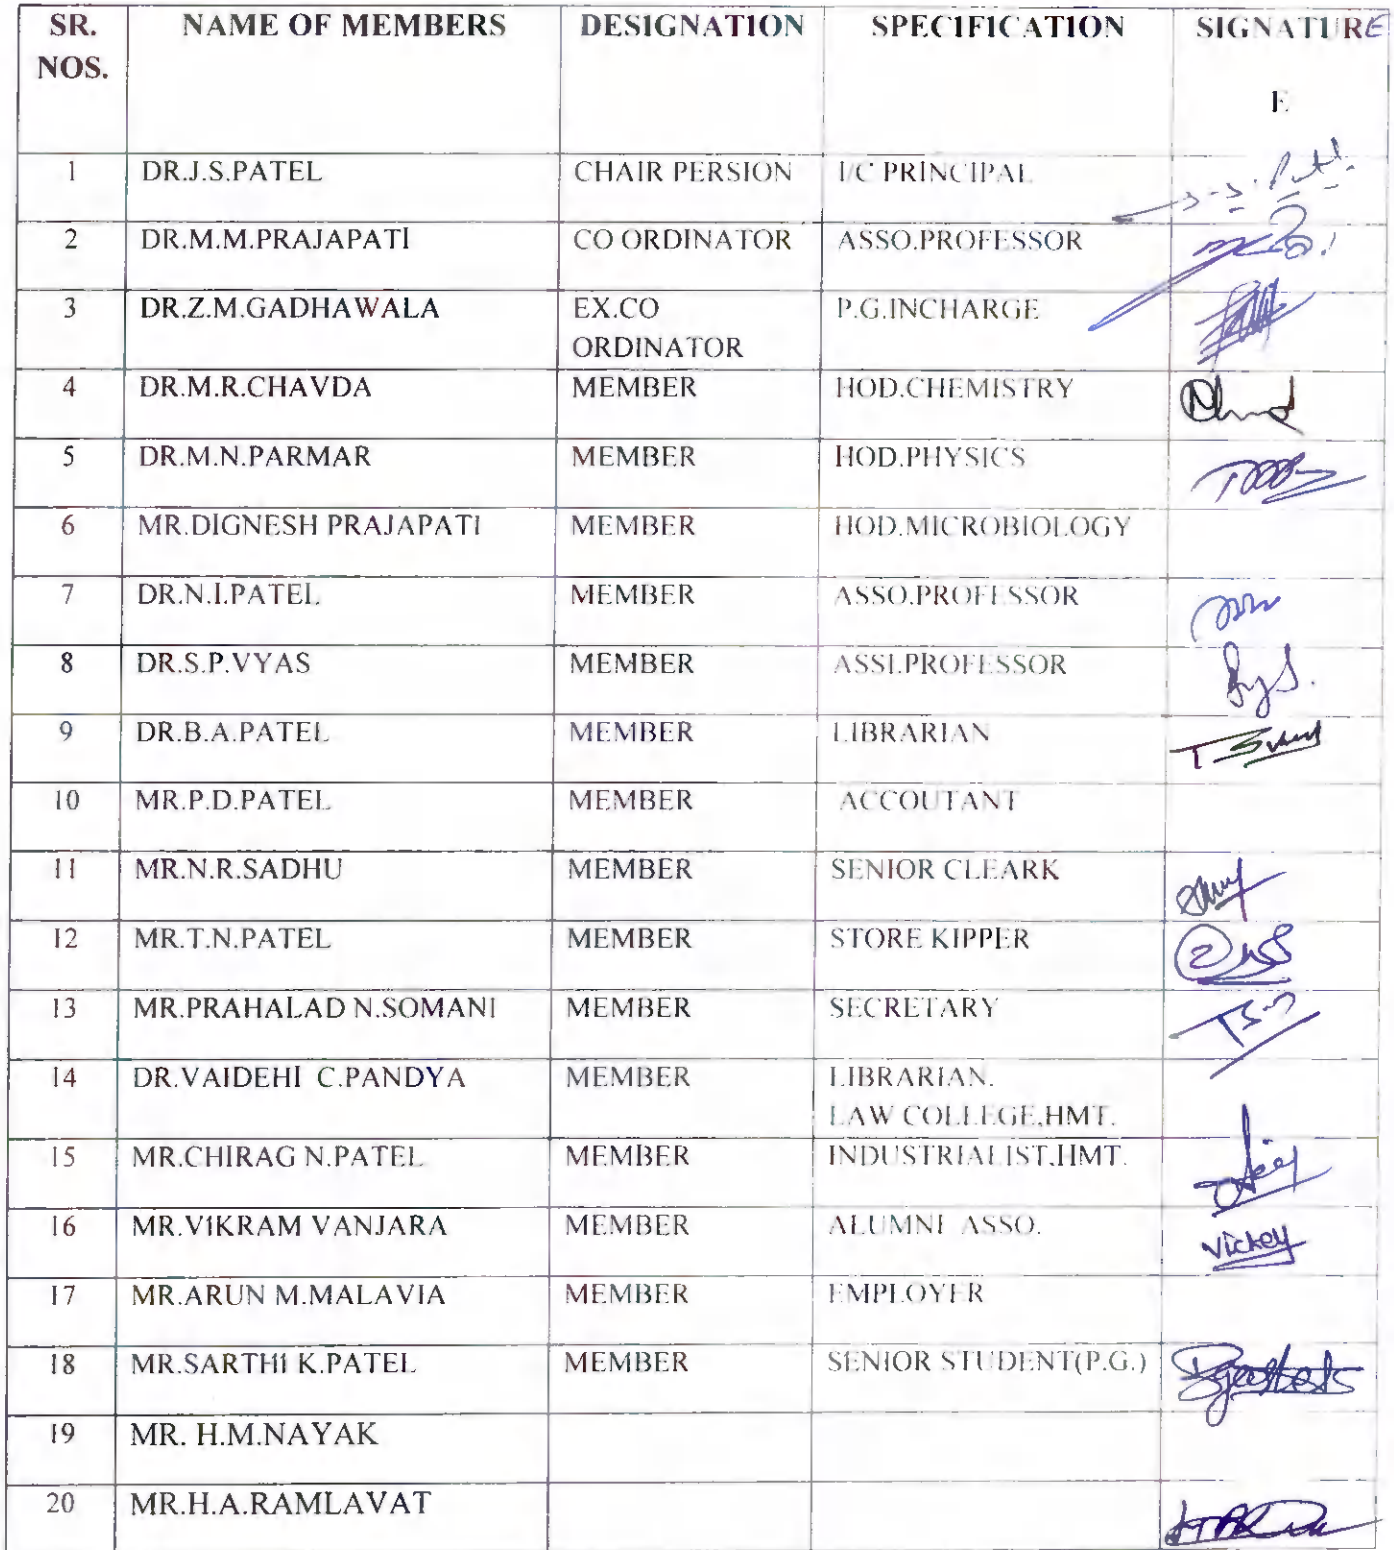 SR. NOS. NAME OF MEMBERS DESIGNATION SPECIFICATION SIGNATURE E
E
1 DR.J.S.PATEL CHAIR PERSION I/C PRINCIPAL J.S.Patel.
2 DR.M.M.PRAJAPATI CO ORDINATOR ASSO.PROFESSOR
3 DR.Z.M.GADHAWALA EX.CO P.G.INCHARGE
ORDINATOR
4 DR.M.R.CHAVDA MEMBER HOD.CHEMISTRY
5 DR.M.N.PARMAR MEMBER HOD.PHYSICS
6 MR.DIGNESH PRAJAPATI MEMBER HOD.MICROBIOLOGY
7 DR.N.I.PATEL MEMBER ASSO.PROFESSOR
8 DR.S.P.VYAS MEMBER ASSI.PROFESSOR
9 DR.B.A.PATEL MEMBER LIBRARIAN
10 MR.P.D.PATEL MEMBER ACCOUTANT
11 MR.N.R.SADHU MEMBER SENIOR CLEARK
12 MR.T.N.PATEL MEMBER STORE KIPPER
13 MR.PRAHALAD N.SOMANI MEMBER SECRETARY
14 DR.VAIDEHI C.PANDYA MEMBER LIBRARIAN.
LAW COLLEGE,HMT.
15 MR.CHIRAG N.PATEL MEMBER INDUSTRIALIST,HMT.
16 MR.VIKRAM VANJARA MEMBER ALUMNI ASSO. Vickey
17 MR.ARUN M.MALAVIA MEMBER EMPLOYER
18 MR.SARTHI K.PATEL MEMBER SENIOR STUDENT(P.G.)
19 MR. H.M.NAYAK
20 MR.H.A.RAMLAVAT